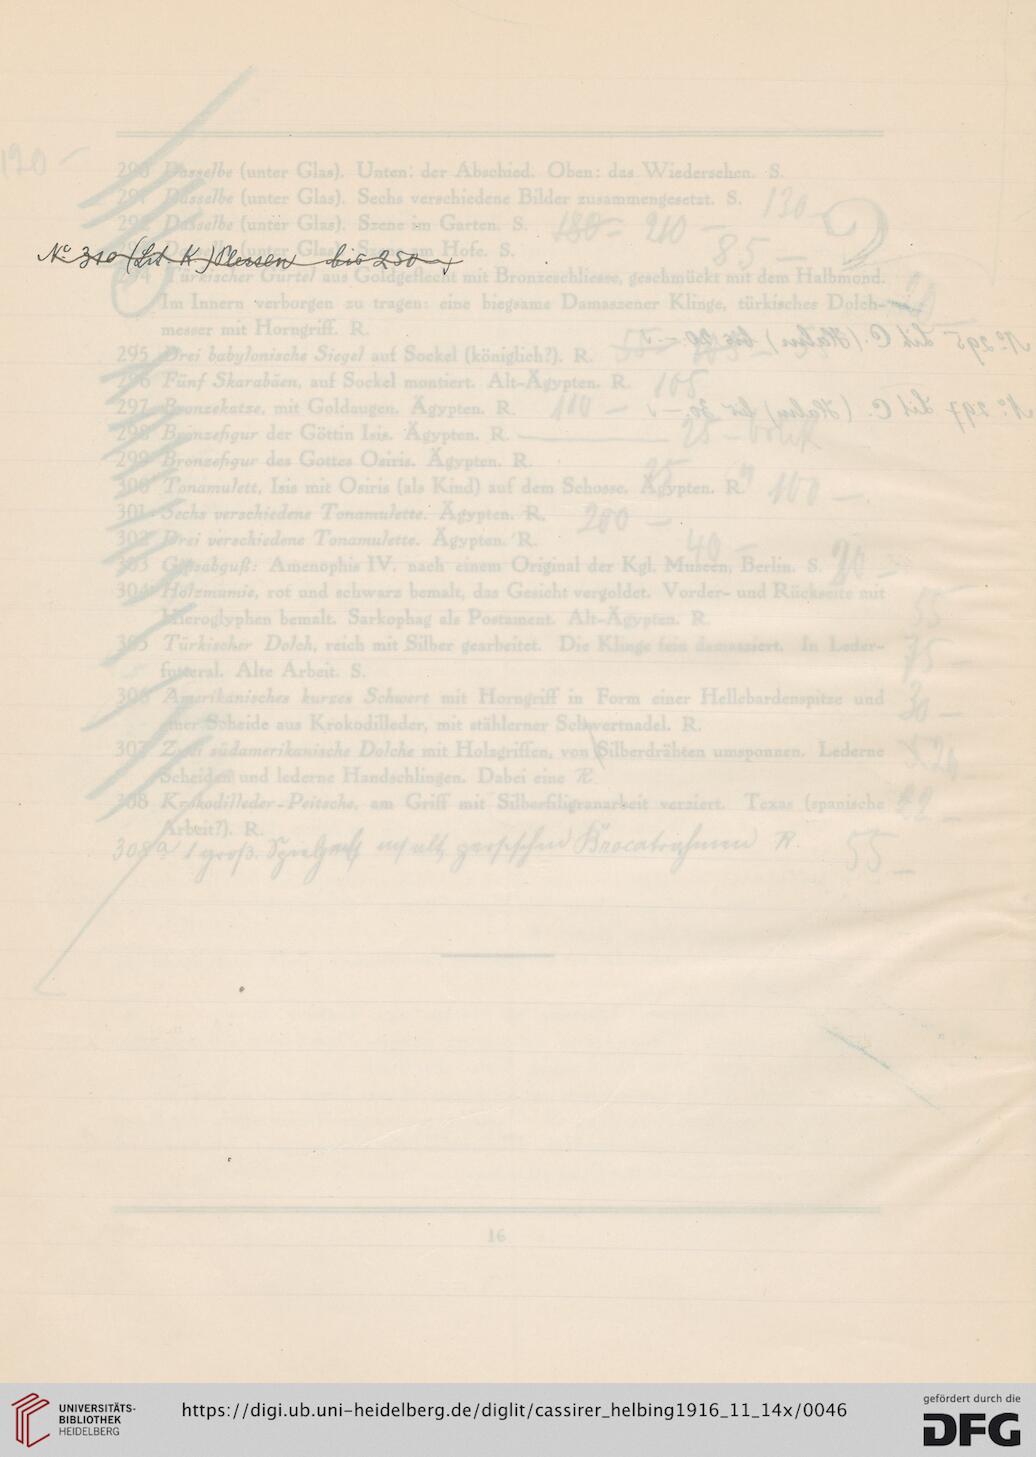 290 Dasselbe (unter Glas). Unten: der Abschied. Oben: das Wiedersehen. S.
291 Dasselbe (unter Glas). Sechs verschiedene Bilder zusammengesetzt. S. 130
292 Dasselbe (unter Glas). Szene im Garten. S. 180 210 —
(unter Glas). Szene am Hofe. S. 85 —
No 310 (Lit. K) bis 250
294 Türkischer Gürtel aus Goldgeflecht mit Bronzeschliesse, geschmückt mit dem Halbmond.
Im Innern verborgen zu tragen: eine biegsame Damaszener Klinge, türkisches Dolch-
messer mit Horngriff. R.
No 295 Lit C. (Hahn) bis 20.—
295 Drei babylonische Siegel auf Sockel (königlich?). R.
296 Fünf Skarabäen, auf Sockel montiert. Alt-Ägypten. R. 105
297 Bronzekatze, mit Goldaugen. Ägypten. R. 110 —
No 297 Lit C. (Hahn) bis 30.—
298 Bronzefigur der Göttin Isis. Ägypten. R. 25 —
299 Bronzefigur des Gottes Osiris. Ägypten. R.
300 Tonamulett, Isis mit Osiris (als Kind) auf dem Schosse. Ägypten. R. 100 —
301 Sechs verschiedene Tonamulette. Ägypten. R. 200 —
302 Drei verschiedene Tonamulette. Ägypten. R. 40 —
303 Gipsabguß: Amenophis IV. nach einem Original der Kgl. Museen, Berlin. S. 20 —
304 Holzmumie, rot und schwarz bemalt, das Gesicht vergoldet. Vorder- und Rückseite mit
Hieroglyphen bemalt. Sarkophag als Postament. Alt-Ägypten. R. 55
305 Türkischer Dolch, reich mit Silber gearbeitet. Die Klinge fein damasziert. In Leder-
futteral. Alte Arbeit. S. 75 —
306 Amerikanisches kurzes Schwert mit Horngriff in Form einer Hellebardenspitze und
einer Scheide aus Krokodilleder, mit stählerner Schwertnadel. R. 30 —
307 Zwei südamerikanische Dolche mit Holzgriffen, von Silberdrähten umsponnen. Lederne
Scheiden und lederne Handschlingen. Dabei eine R.
308 Krokodilleder-Peitsche, am Griff mit Silberfiligranarbeit verziert. Texas (spanische
Arbeit?). R.
308a 1 groß. R. 55 —
16
UNIVERSITÄTS-
BIBLIOTHEK
HEIDELBERG
https://digi.ub.uni-heidelberg.de/diglit/cassirer_helbing1916_11_14x/0046
gefördert durch die
DFG